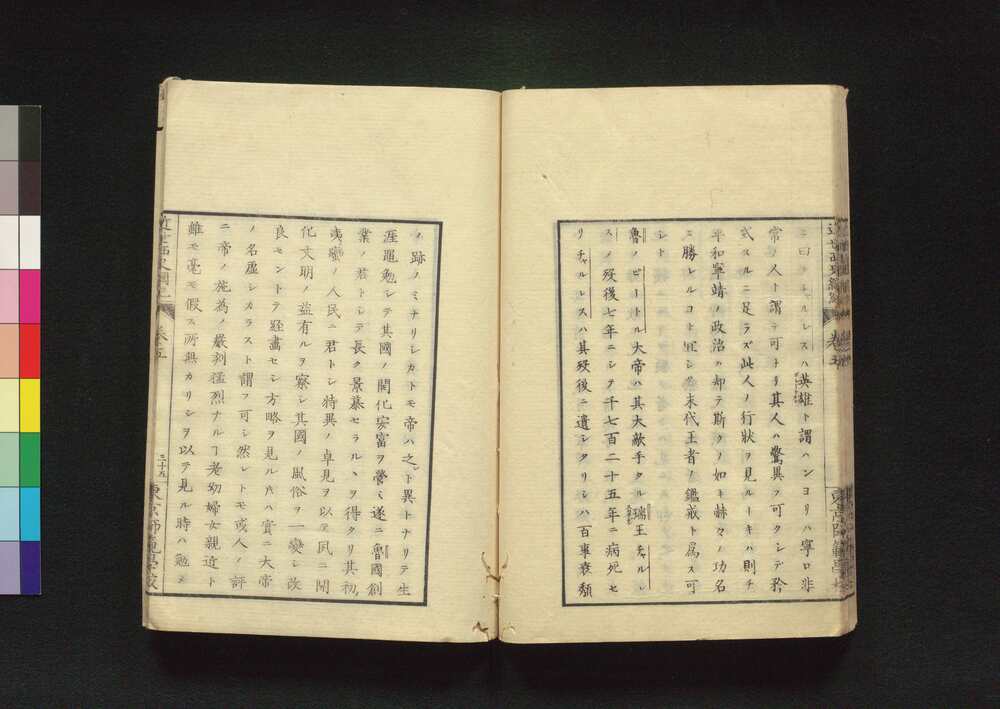 ニ曰クチャルレスハ英雄ト謂ハンヨリハ寧ロ非
常ノ人ト謂テ可ナリ其人ハ驚異ス可クシテ矜
式スルニ足ラズ此人ノ行狀ヲ見ルトキハ則チ
平和寧靖ノ政治ハ却テ斯クノ如キ赫々ノ功名
ニ勝レルコト宜シク末代王者ノ鑑戒ト爲ス可
シト
魯ノピートル大帝ハ其大敵手タル瑞王チャルレ
スノ歿後七年ニシテ千七百二十五年ニ病死セ
リチャルレスハ其歿後ニ遺シタリシハ百事衰頽
ノ跡ノミナリシカトモ帝ハ之ト異トナリテ生
涯黽勉シテ其國ノ開化安富ヲ營ミ遂ニ魯國創
業ノ君トシテ長ク景慕セラルヽヲ得タリ其初
夷蠻ノ人民ニ君トシ特異ノ卓見ヲ以テ民ニ開
化文明ノ益有ルヲ察シ其國ノ風俗ヲ一變シ改
良セントテ經畫セシ方略ヲ見ルキハ實ニ大帝
ノ名虛シカラスト謂フ可シ然レトモ或人ノ評
ニ帝ノ施爲ノ嚴刻猛烈ナルヿ老幼婦女親近ト
雖モ毫モ假ス所無カリシヲ以テ見ル時ハ勉テ
卷五
二十五
東京師範學校